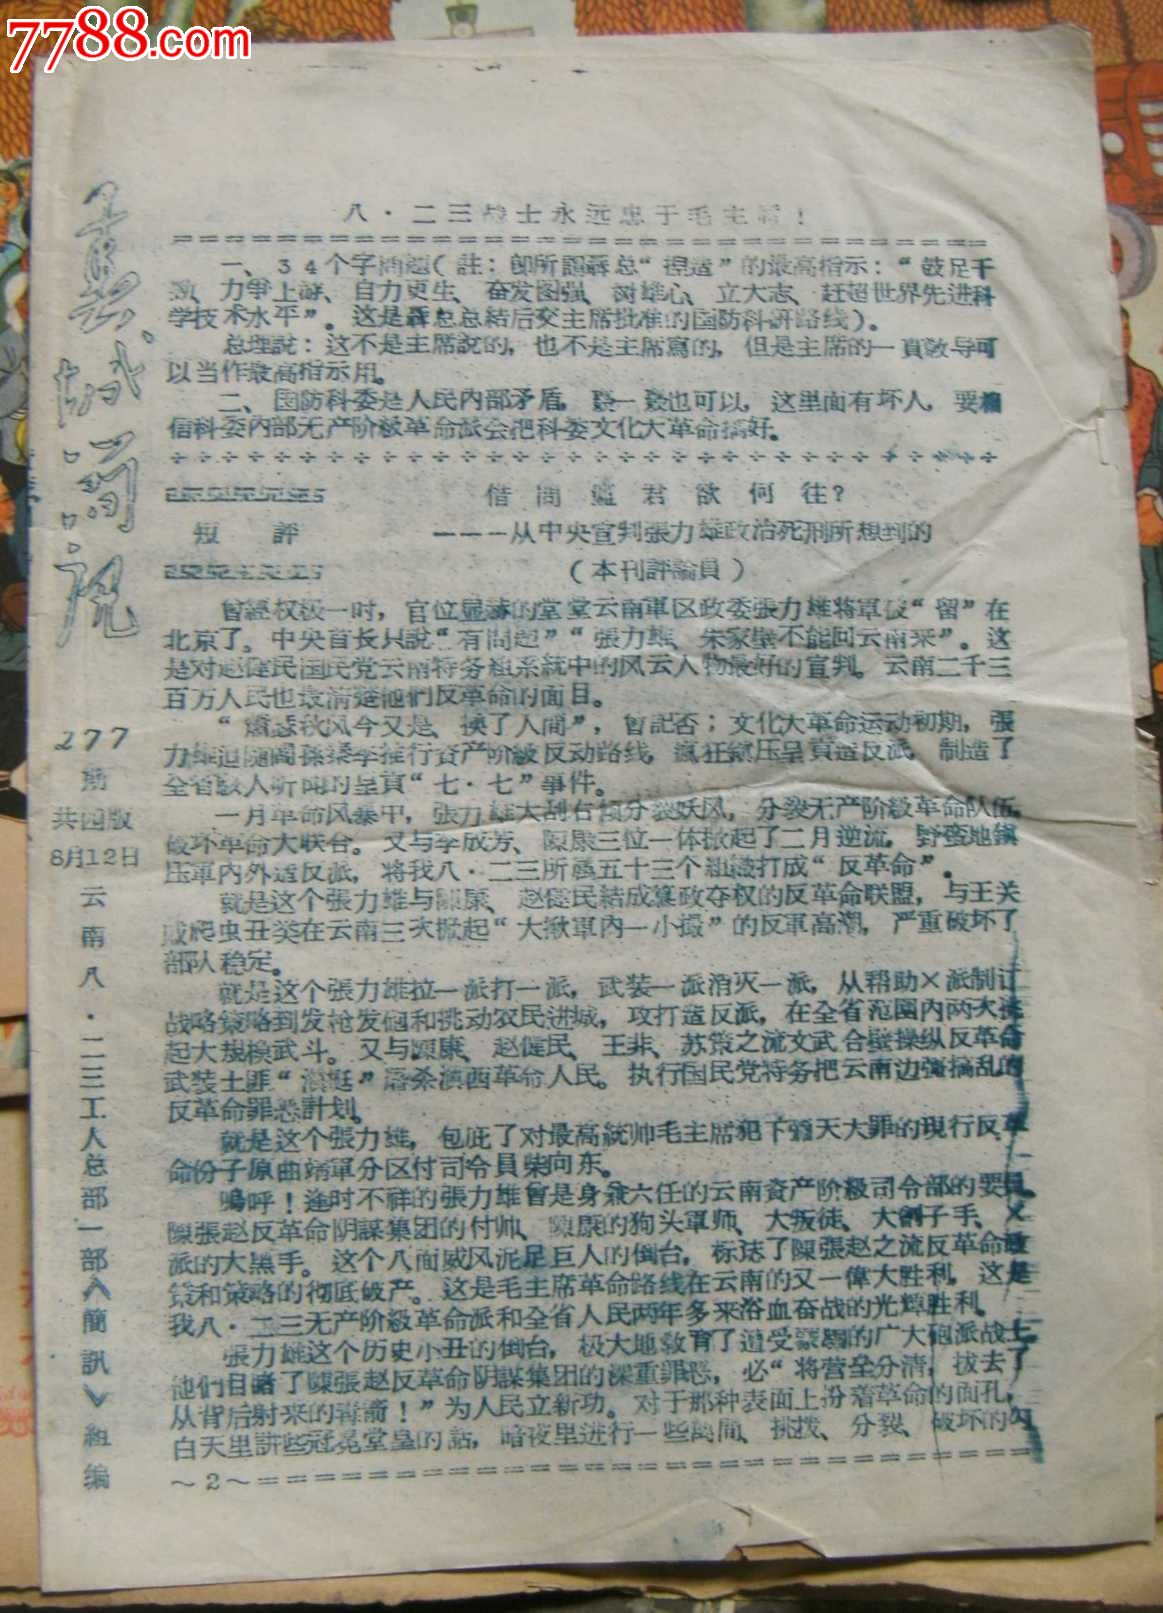 7788.com
277
期
共四版
8月12日
云南八·二三工人总部一部《簡訊》組编
八·二三战士永远忠于毛主席!
一、34个字问题(註:即所謂聶总“捏造”的最高指示:“鼓足干
劲、力爭上游、自力更生、奋发图强、树雄心、立大志、赶超世界先进科
学技术水平”。这是聶总总結后交主席批准的国防科研路线)。
总理說:这不是主席說的,也不是主席寫的,但是主席的一貫教导可
以当作最高指示用。
二、国防科委是人民內部矛盾,轰一轰也可以,这里面有坏人,要相
信科委內部无产阶級革命派会把科委文化大革命搞好。
短評
借问瘟君欲何往?
———从中央宣判張力雄政治死刑所想到的
(本刊評論員)
曾經权极一时,官位显赫的堂堂云南軍区政委張力雄将軍被“留”在
北京了。中央首长只說“有問題”“張力雄、朱家璧不能回云南来”。这
是对赵健民国民党云南特务組系統中的风云人物最好的宣判。云南二千三
百万人民也最清楚他們反革命的面目。
“蕭瑟秋风今又是,换了人间”,曾記否;文化大革命运动初期,張
力雄追随阎孫梁李推行資产阶級反动路线,瘋狂鎮压呈貢造反派,制造了
全省駭人听闻的呈貢“七·七”事件。
一月革命风暴中,張力雄大刮右倾分裂妖风,分裂无产阶級革命队伍,
破坏革命大联合。又与李成芳、陳康三位一体掀起了二月逆流,野蛮地鎮
压軍內外造反派,将我八·二三所屬五十三个組織打成“反革命”。
就是这个張力雄与陳康、赵健民結成篡政夺权的反革命联盟,与王关
戚爬虫丑类在云南三次掀起“大揪軍內一小撮”的反軍高潮,严重破坏了
部队稳定。
就是这个張力雄拉一派打一派,武装一派消灭一派,从帮助×派制订
战略策略到发枪发砲和挑动农民进城,攻打造反派,在全省范围内两次挑
起大規模武斗。又与陳康、赵健民、王非、苏策之流文武合壁操纵反革命
武装土匪“滇挺”屠杀滇西革命人民。执行国民党特务把云南边疆搞乱的
反革命罪恶計划。
就是这个張力雄,包庇了对最高統帅毛主席犯下滔天大罪的現行反革
命份子原曲靖軍分区付司令員柴向东。
嗚呼!逢时不祥的張力雄曾是身兼六任的云南資产阶級司令部的要員、
陳張赵反革命阴謀集团的付帅、陳康的狗头軍师、大叛徒、大劊子手、×
派的大黑手。这个八面威风泥足巨人的倒台,标誌了陳張赵之流反革命政
策和策略的彻底破产。这是毛主席革命路线在云南的又一偉大胜利,这是
我八·二三无产阶級革命派和全省人民两年多来浴血奋战的光輝胜利。
張力雄这个历史小丑的倒台,极大地教育了遭受蒙騙的广大砲派战士
他們目睹了陳張赵反革命阴謀集团的深重罪恶,必“将营垒分清,拔去了
从背后射来的毒箭!”为人民立新功。对于那种表面上扮着革命的面孔,
白天里講些冠冕堂皇的話,暗夜里进行一些離间、挑拨、分裂、破坏的勾
~2~